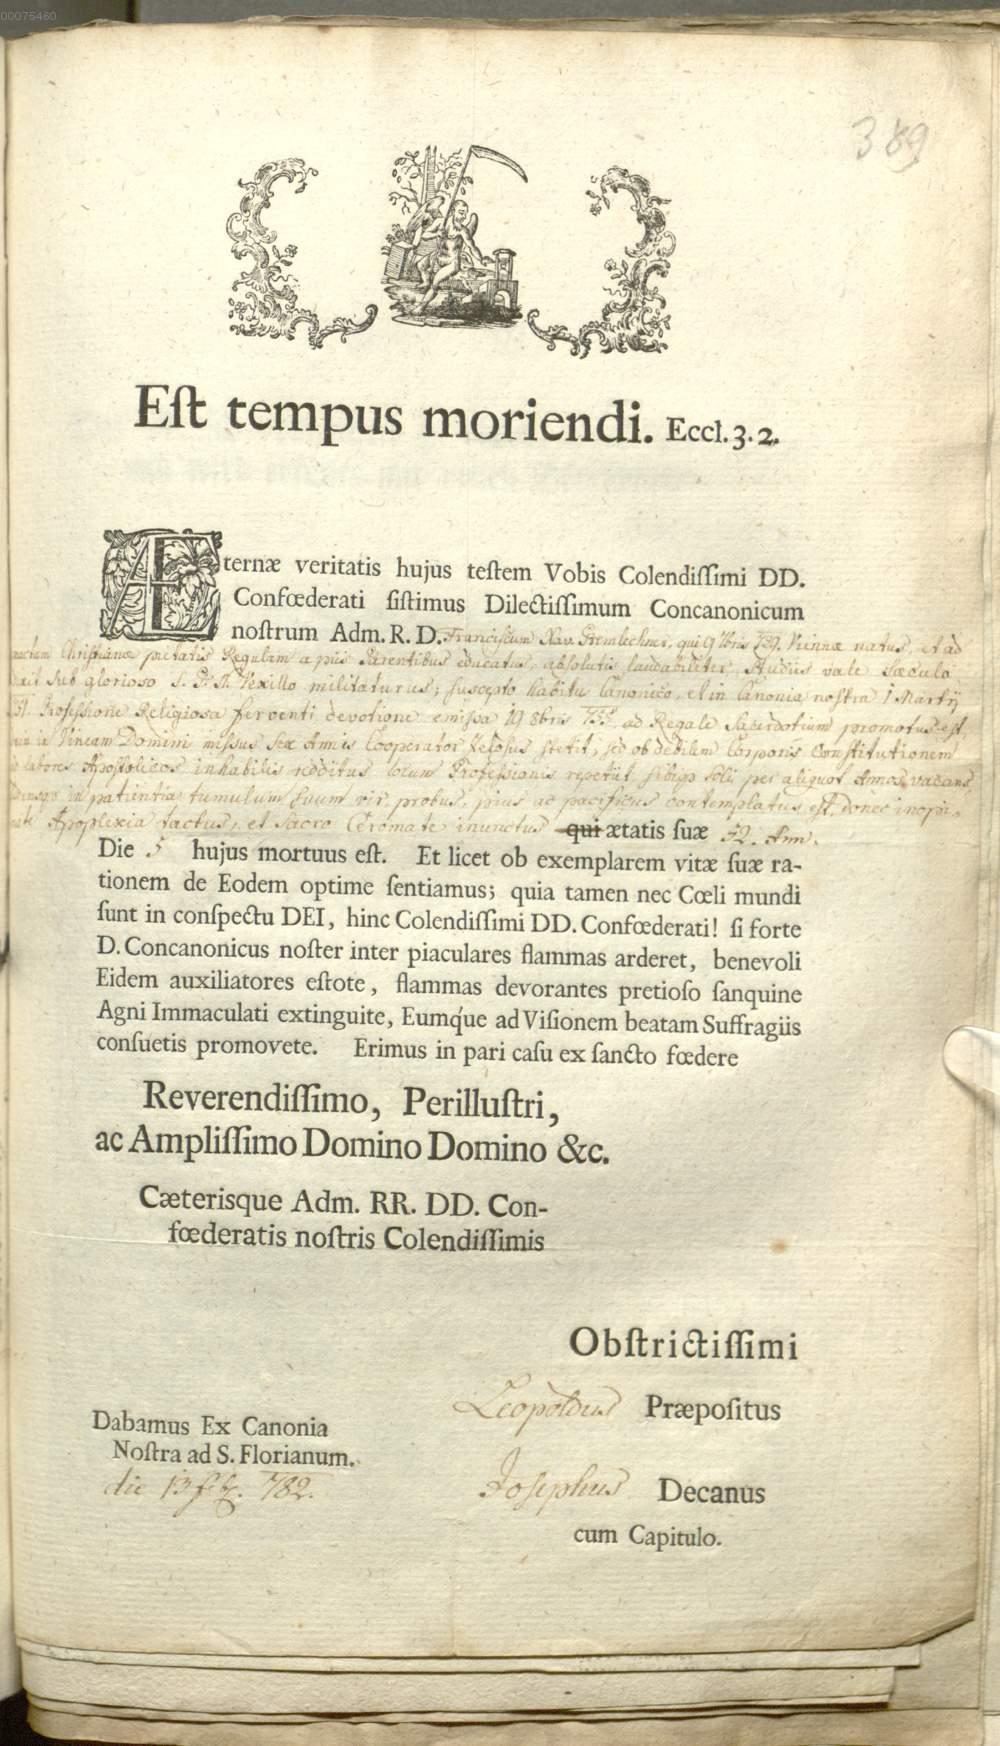 00075460
389
Eſt tempus moriendi. Eccl. 3. 2.
Æternæ veritatis hujus teſtem Vobis Colendiſſimi DD.
Confœderati ſiſtimus Dilectiſſimum Concanonicum
noſtrum Adm. R. D. Franciscum Xav. Gremlechner, qui 9bris 729. Viennæ natus, et ad
Christianæ pietatis Regulam a piis Parentibus educatus, absolutis laudabiliter Studiis vale Sæculo
sub glorioso S. P. A. Vexillo militaturus; suscepto habitu Canonico, et in Canonia nostra 1 Martii
Professione Religiosa ferventi devotione emissa 19 8bris 755 ad Regale Sacerdotium promotus est,
in Vineam Domini missus sex Annis Cooperator Zelosus stetit, sed ob debilem Corporis Constitutionem
labores Apostolicos inhabilis redditus locum Professionis repetiit, sibiq soli per aliquot Annos vacans
in patientia tumulum suum vir probus, pius ac pacificus contemplatus est, donec inopi-
Apoplexia tactus, et Sacro Ceromate inunctus qui ætatis ſuæ 52. Ann.
Die 5 hujus mortuus eſt. Et licet ob exemplarem vitæ ſuæ ra-
tionem de Eodem optime ſentiamus; quia tamen nec Cœli mundi
ſunt in conſpectu DEI, hinc Colendiſſimi DD. Confœderati! ſi forte
D. Concanonicus noſter inter piaculares flammas arderet, benevoli
Eidem auxiliatores eſtote, flammas devorantes pretioſo ſanquine
Agni Immaculati extinguite, Eumq́ue ad Viſionem beatam Suffragiis
conſuetis promovete. Erimus in pari caſu ex ſancto fœdere
Reverendiſſimo, Perilluſtri,
ac Ampliſſimo Domino Domino &c.
Cæterisque Adm. RR. DD. Con-
fœderatis noſtris Colendiſſimis
Obſtrictiſſimi
Leopoldus Præpoſitus
Dabamus Ex Canonia
Noſtra ad S. Florianum.
die 13 feb. 782.
Josephus Decanus
cum Capitulo.